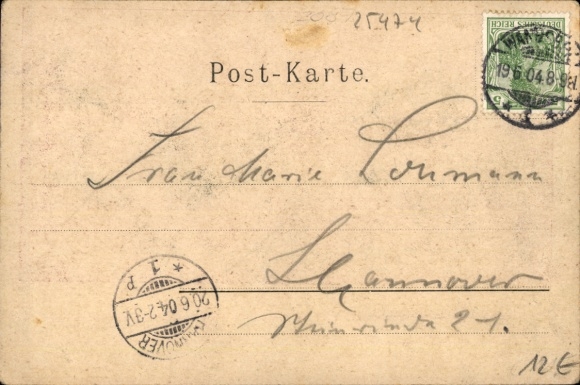 25474
DEUTSCHES REICH
5
WANDSBEK
19.6.04.8-9N.
* 1 *
Post-Karte.
Frau Marie Lohmann
Hannover
21.
HANNOVER
20.6.04.2-3V.
* 1 P
12€